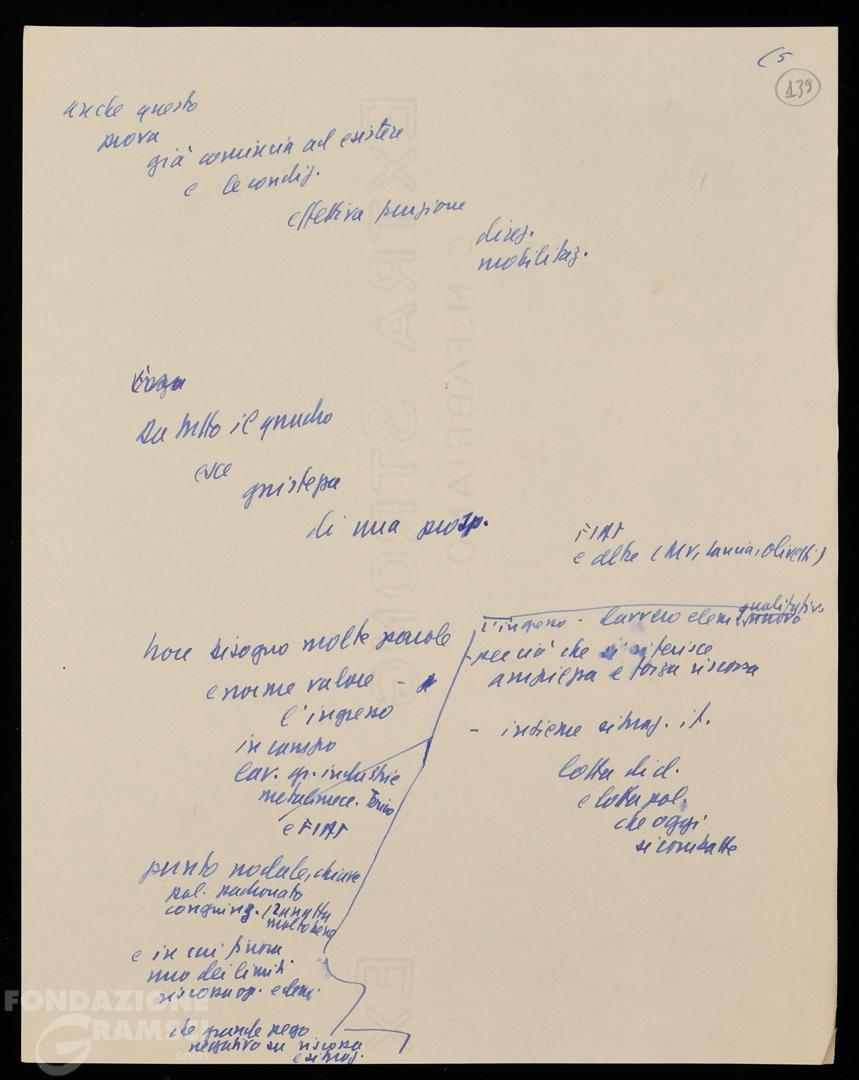 (5
139
anche questo
prova
già comincia ad esistere
e le condiz.
effettiva funzione
direz.
mobilitaz.
Da tutto il quadro
esce
giustezza
di una prosp.
FIAT
e altre (RIV, Lancia, Olivetti)
non bisogno molte parole
enorme valore -
l'ingresso
in campo
lav. gr. industrie
metalmecc. Torino
e FIAT
punto nodale, chiave
pol. padronato
congiung.
molto bene
e in cui finora
uno dei limiti
riscossa op. e dem.
che grande peso
negativo su riscossa
e situaz.
l'ingresso - davvero elem. qualitativo
nuovo
- per ciò che si riferisce
ampiezza e forza riscossa
- insieme situaz. it.
lotta di cl.
e lotta pol.
che oggi
si combatte
EXTRA STRONG
C.M. FABRIANO
EX
FONDAZIONE
GRAMSCI
ONLUS